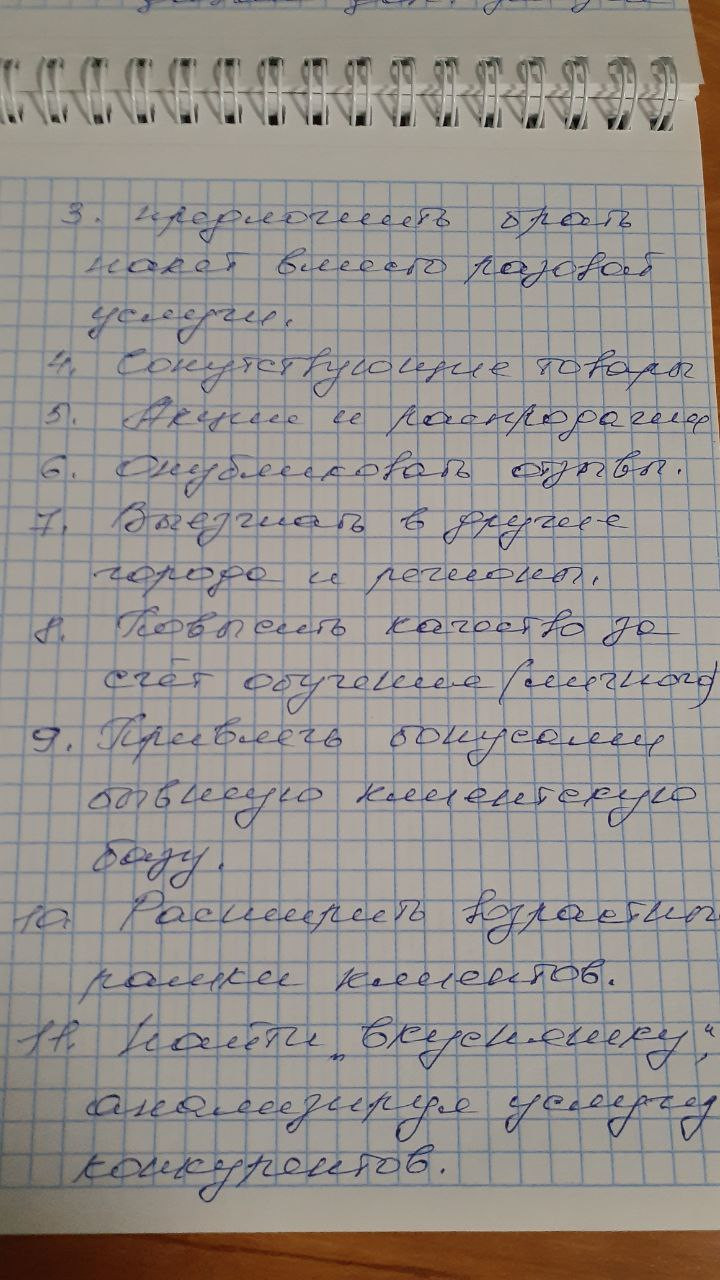 3. предложить брать
пакет вместо разовой
услуги.
4. Сопутствующие товары
5. Акции и распродажи
6. Опубликовать отзывы.
7. Выезжать в другие
города и регионы.
8. Повысить качество за
счёт обучения (личного)
9. Привлечь бонусами
бывшую клиентскую
базу.
10 Расширить возрастны
рамки клиентов.
11. Найти „вкусняшку",
анализируя услуги
конкурентов.